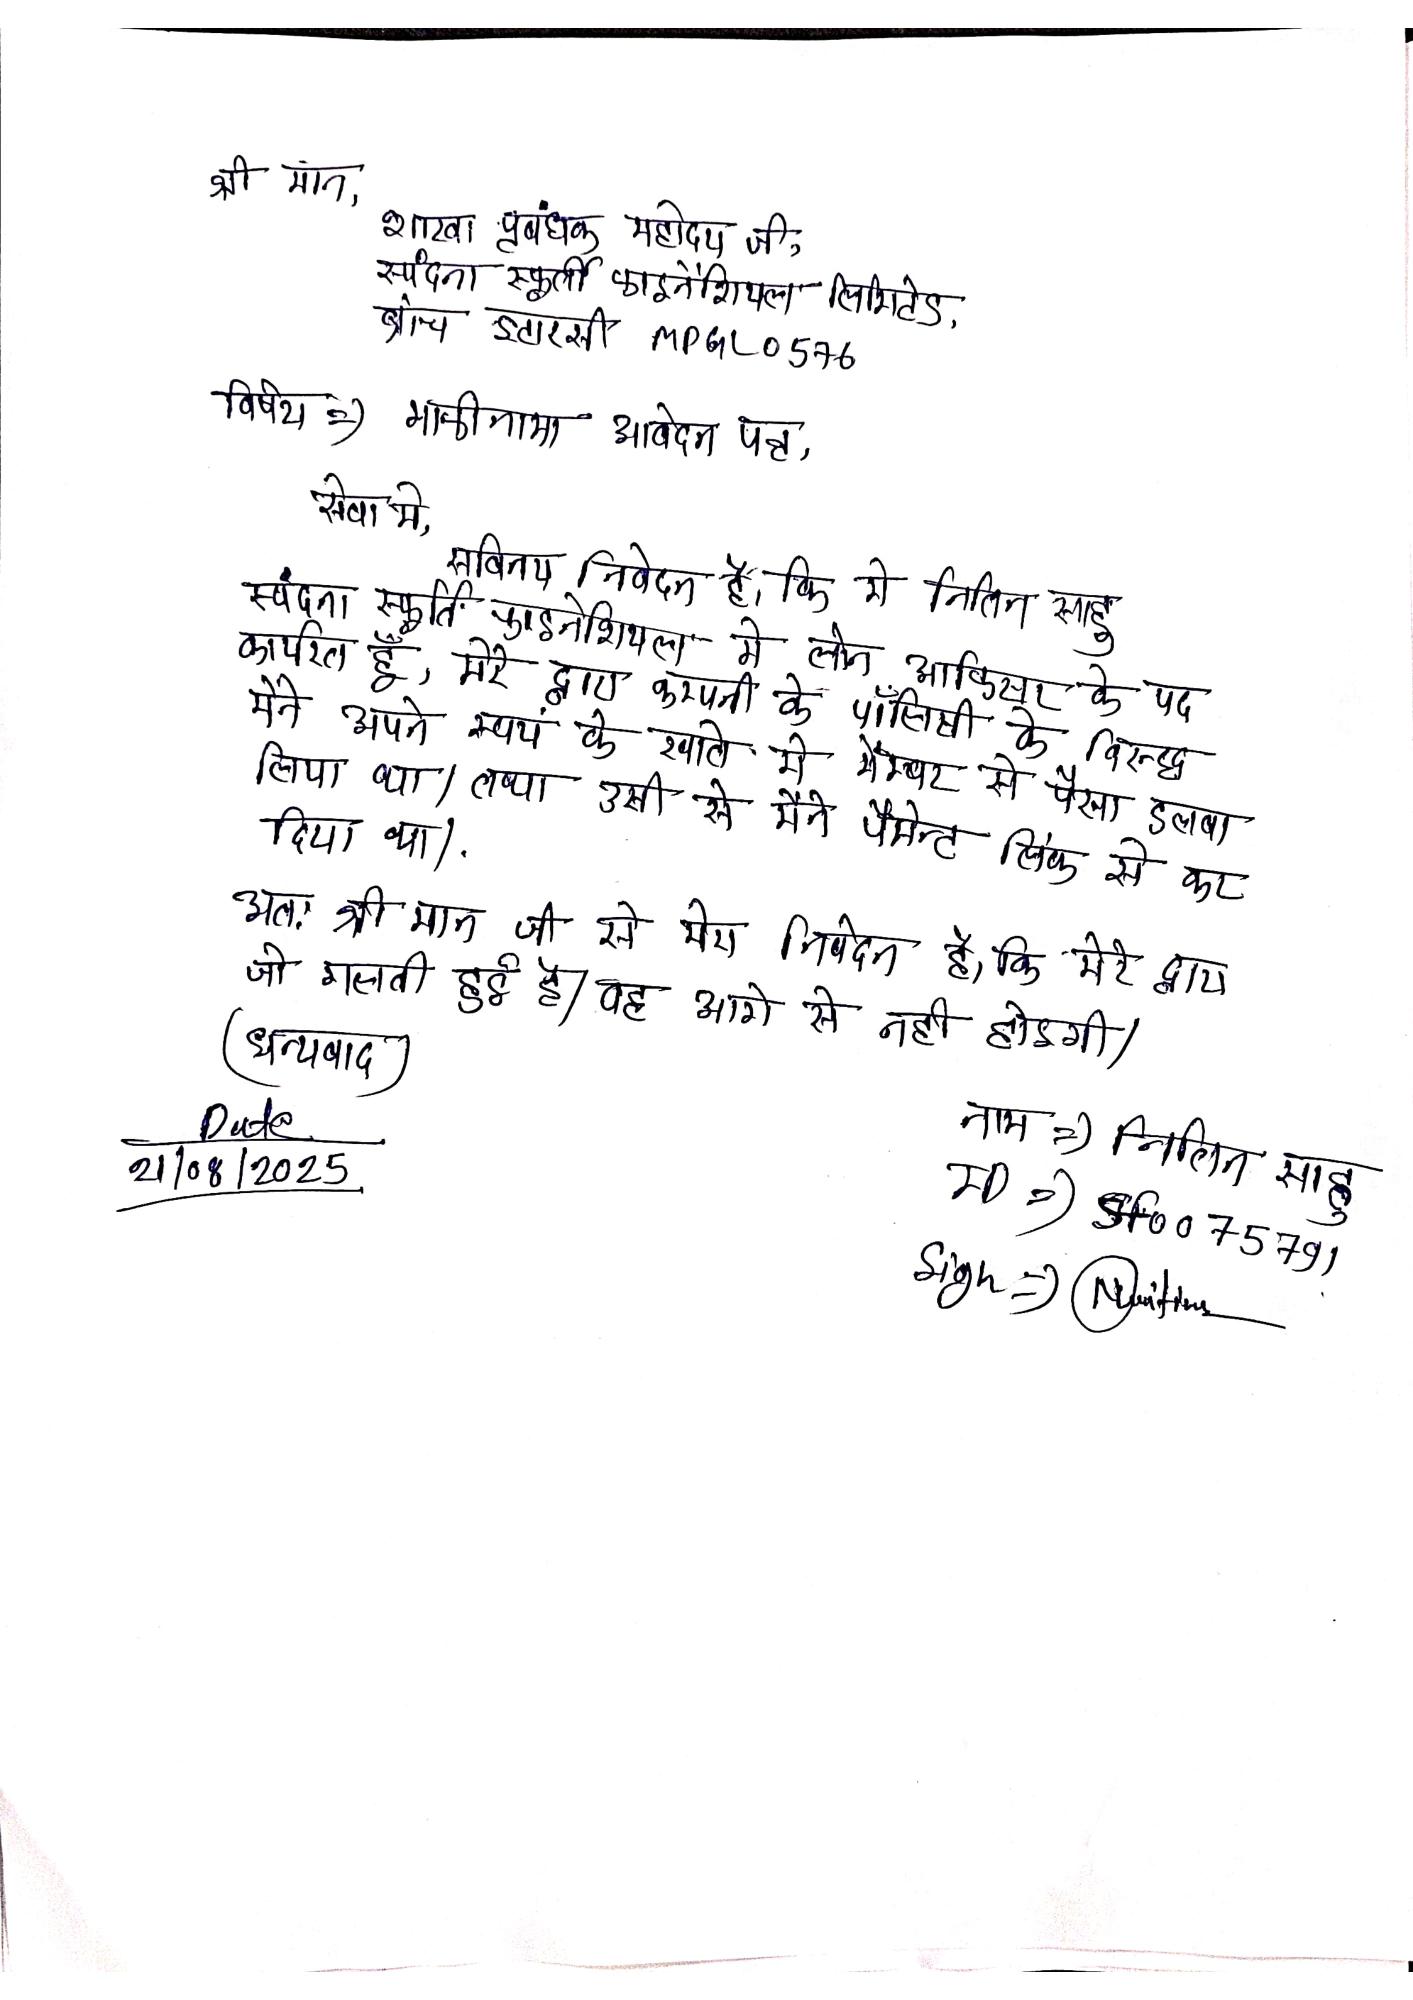 श्री मान,
शाखा प्रबंधक महोदय जी,
स्पंदना स्फूर्ती फाइनेंशियल लिमिटेड,
ब्रांच इटारसी MPGL0576
विषय => माफीनामा आवेदन पत्र,
सेवा मे,
सविनय निवेदन है, कि मे नितिन साहु
स्पंदना स्फूर्ति फाइनेशियल मे लोन आफिसर के पद
कार्यरत हूँ, मेरे द्वारा कम्पनी के पॉलिसी के विरुद्ध
मैने अपने स्वयं के खाते मे मेम्बर से पैसा डलवा
लिया था। तथा उसी से मैंने पैमेन्ट लिंक से कर
दिया था।.
अतः श्री मान जी से मेरा निवेदन है, कि मेरे द्वारा
जो गलती हुई है। वह आगे से नही होइगी।
(धन्यबाद)
Date
21/08/2025
नाम => नितिन साहु
ID => Sf0075791
Sign => Nitin